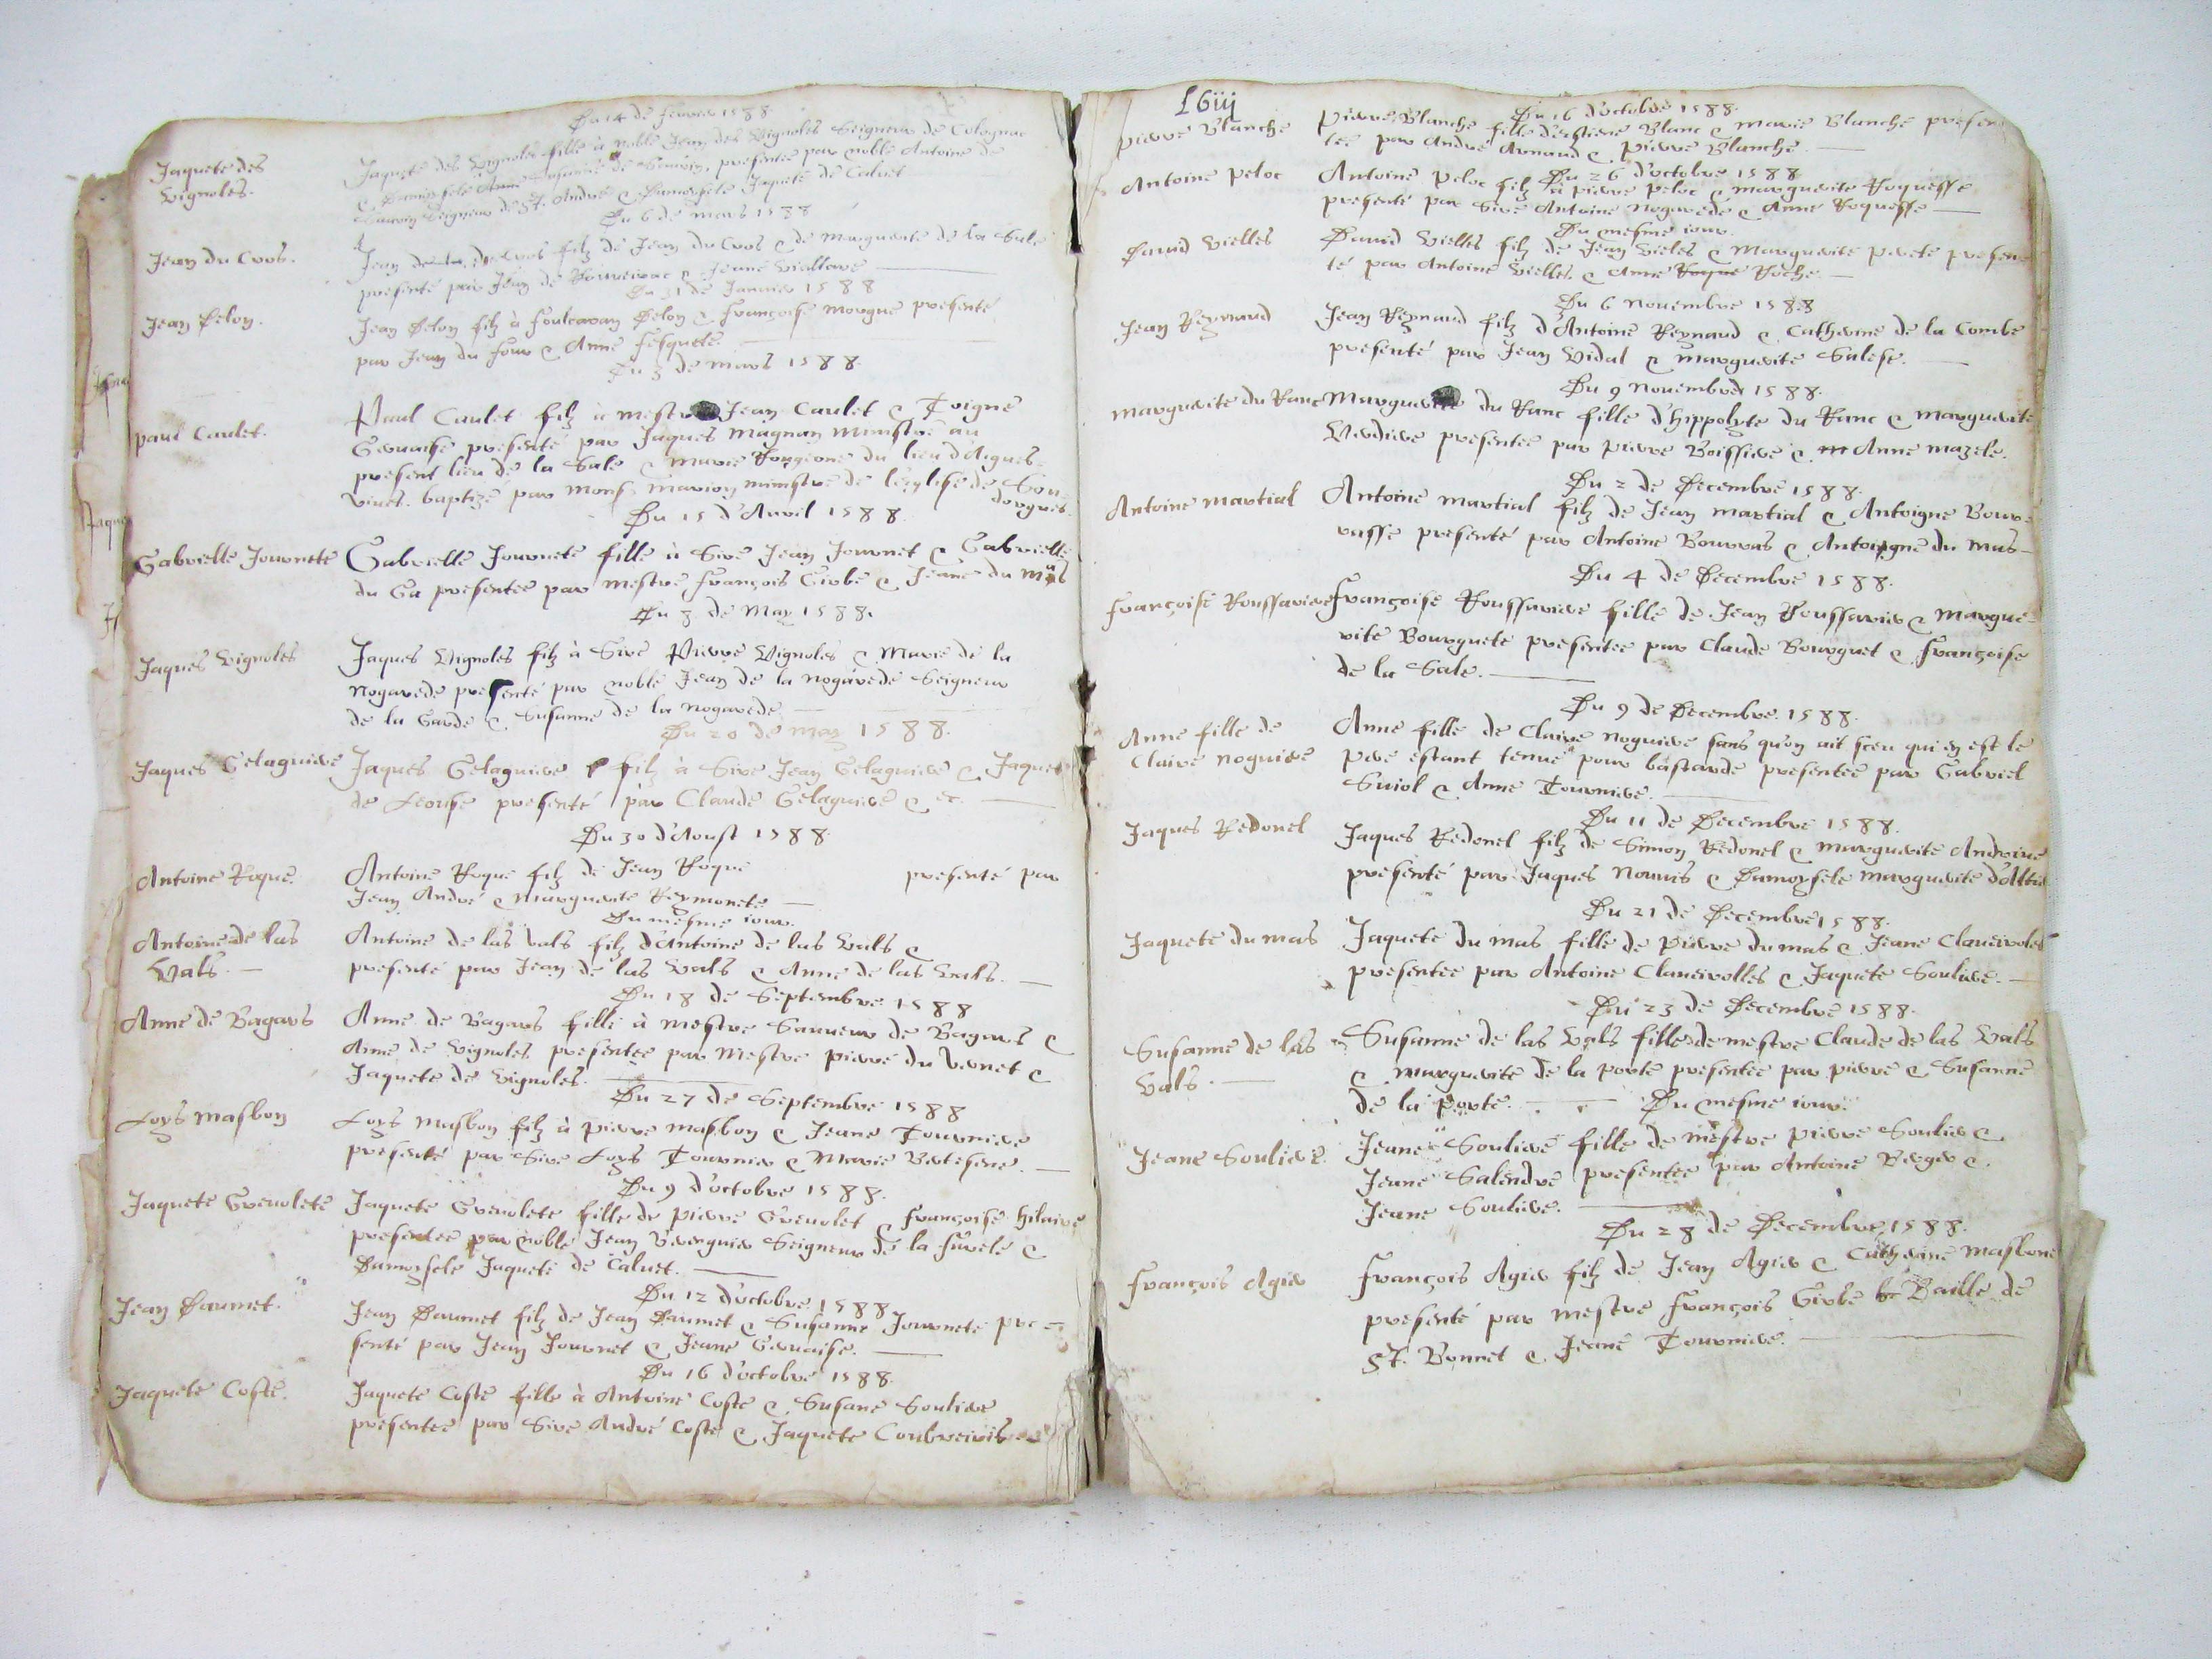 Du 14 de feurier 1588.
Jaquete des
Vignoles.
Jaquete des Vignoles fille à noble Jean des Vignoles Seigneur de Colognac
& Damoisele Anne de presentee par noble Antoine de
Seigneur de St. André & Damoisele Jaquete de Caluet
Du 6 de mars 1588
Jean du Cros.
Jean du Cros filz de Jean du Cros & de Marguerite de la Sale
presenté par Jean de Rouveirac & Jeane Viallare
Du 31 de Januier 1588
Jean Delon.
Jean Delon filz à Foulcaran Delon & Françoise Morgue presenté
par Jean du Four & Anne Fesquete.
Du 3 de mars 1588.
Paul Caulet.
Paul Caulet filz à mestre Jean Caulet & Toigne
Geruaise presenté par Jaques Magnan Ministre au
present lieu de la Sale & Marie Rougeone du lieu d'Aigues-
viues. baptizé par Mons. Marion ministre de leglise de Sou-
dorgues.
Du 15 d'Auril 1588.
Gabrielle Journete
Gabrielle Journete fille à Sire Jean Journet & Gabrielle
du Ga presentee par mestre François Girbe & Jeane du mas
Du 8 de May 1588.
Jaques Vignoles
Jaques Vignoles filz à Sire Pierre Vignoles & Marie de la
Nogarede presenté par noble Jean de la Nogarede Seigneur
de la Garde & Susanne de la Nogarede.
Du 20 de may 1588.
Jaques Gelaguiere
Jaques Gelaguiere filz à Sire Jean Gelaguiere & Jaquete
de Leouse presenté par Claude Gelaguiere & etc.
Du 30 d'Aoust 1588.
Antoine Roque.
Antoine Roque filz de Jean Roque presenté par
Jean André & Marguerite Reymonete
Du mesme iour.
Antoine de las
Vals.
Antoine de las Vals filz d'Antoine de las Vals &
presenté par Jean de las Vals & Anne de las Vals.
Du 18 de Septembre 1588
Anne de Bagars
Anne de Bagars fille à mestre Sauueur de Bagars &
Anne de Vignoles presentee par Mestre Pierre du Vernet &
Jaquete de Vignoles.
Du 27 de Septembre 1588
Loys Masbon
Loys Masbon filz à Pierre Masbon & Jeane Tourniere
presenté par Sire Loys Tournier & Marie Bertesene.
Du 9 d'octobre 1588.
Jaquete Greuolete
Jaquete Greuolete fille de Pierre Greuolet & Françoise hilaire
presentee par noble Jean Verguier Seigneur de la Furele &
Damoysele Jaquete de Caluet.
Du 12 d'octobre 1588
Jean Daumet.
Jean Daumet filz de Jean Daumet & Susanne Journete pre-
senté par Jean Journet & Jeane Geruaise.
Du 16 d'octobre 1588.
Jaquete Coste.
Jaquete Coste fille à Antoine Coste & Susane Souliere
presentee par Sire André Coste & Jaquete
LGiij
Du 16 d'octobre 1588.
Pierre Blanche
Pierre Blanche fille d'estiene Blanc & Marie Blanche presen
tee par André Arnaud & Pierre Blanche.
Du 26 d'octobre 1588
Antoine Peloc
Antoine Peloc filz à Pierre Peloc & Marguerite Roquesse
presenté par Sire Antoine Nogarede & Anne Roquesse
Du mesme iour.
Dauid Vielles
Dauid Vielles filz de Jean Vieles & Marguerite Perete presen
té par Antoine Vielles & Anne Roque Roche.
Du 6 Nouembre 1588
Jean Reynaud
Jean Reynaud filz d'Antoine Reynaud & Catherine de la Combe
presenté par Jean Vidal & Marguerite Salese.
Du 9 Nouembre 1588.
Marguerite du Ranc
Marguerite du Ranc fille d'hippolyte du Ranc & Marguerite
Verdiere presentee par Pierre Boissiere & m Anne Mazele.
Du 2 de Decembre 1588.
Antoine Martial
Antoine Martial filz de Jean Martial & Antoigne Bour-
rasse presenté par Antoine Bourras & Antoigne du Mas
Du 4 de Decembre 1588.
Françoise Roussariere
Françoise Roussariere fille de Jean Roussarier & Margue-
rite Bourguete presentee par Claude Bourguet & Françoise
de la Sale.
Du 9 de Decembre 1588.
Anne fille de
Claire Noguiere
Anne fille de Claire Noguiere sans qu'on ait sceu qui en est le
pere estant tenue pour bastarde presentee par Gabriel
Suiol & Anne Tourniere.
Du 11 de Decembre 1588.
Jaques Redonel
Jaques Redonel filz de Simon Redonel & Marguerite Andriue
presenté par Jaques Nouuis & Damoysele Marguerite
Du 21 de Decembre 1588.
Jaquete du mas
Jaquete du mas fille de Pierre du mas & Jeane Claueiroles
presentee par Antoine Claueirolles & Jaquete Souliere.
Du 23 de Decembre 1588.
Susanne de las
Vals.
Susanne de las Vals fille de mestre Claude de las Vals
& Marguerite de la Porte presentee par Pierre & Susanne
de la Porte. Du mesme iour.
Jeane Souliere.
Jeane Souliere fille de mestre Pierre Soulier &
Jeane Salendre presentee par Antoine Berger &
Jeane Souliere.
Du 28 de Decembre 1588.
François Agier
François Agier filz de Jean Agier & Catherine Masbone
presenté par mestre François Girbe Baille de
St. Bonnet & Jeane Tourniere.